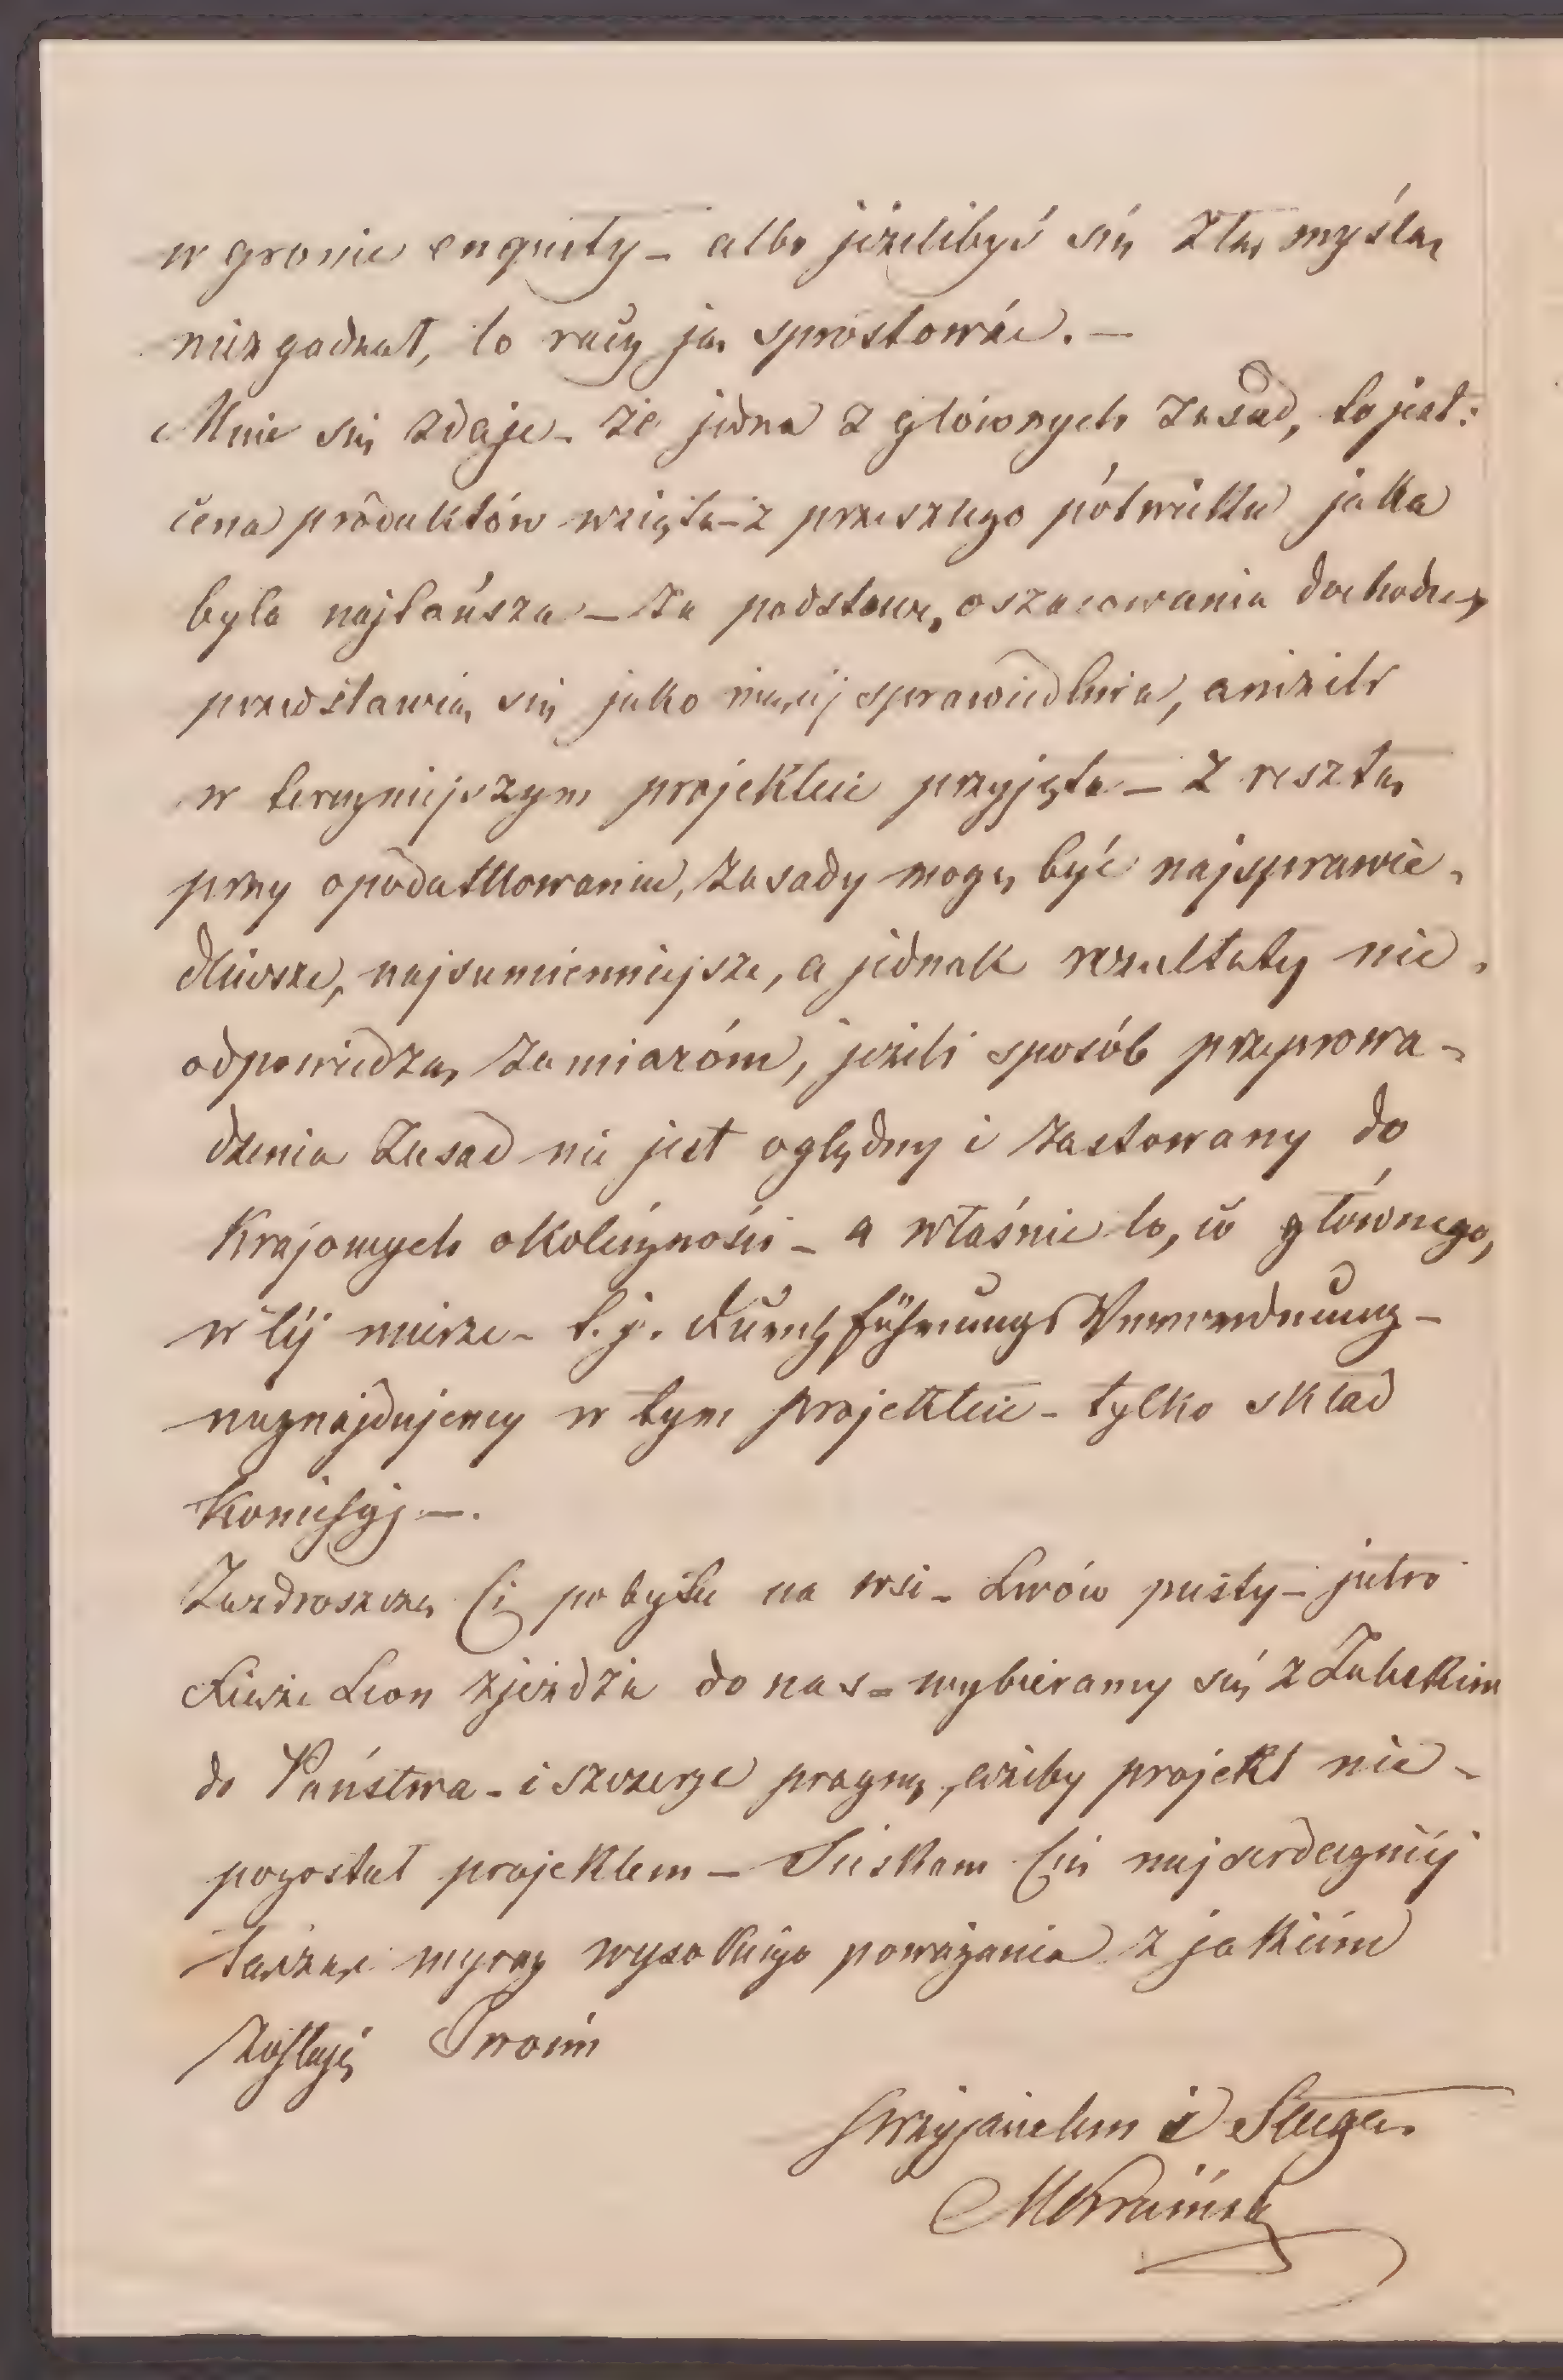 w gronie enquety – albo jeżelibyś się z tą myślą
niezgadzał, to racz ją sprostować. –
Mnie się zdaje – że jedna z głównych zasad, to jest:
cena produktów wzięta – z przeszłego półwieku jaka
była najtańsza – za podstawę oszacowania dochodu,
przedstawia się jako sprawiedliwa, aniżeli
w teraźniejszym projekcie przyjęta – Z resztą
przy opodatkowaniu, zasady mogą być najsprawie-
dliwsze, najsumienniejsze, a jednak rezultaty nie-
odpowiedzą zamiaróm, jeżeli sposób przeprowa-
dzenia zasad nie jest oględny i zastowany do
krajowych okoliczności – a właśnie to, co głównego,
w téj mierze – t. j. Durchführungs Verordnung –
nieznajdujemy w tym projekcie – tylko skład
komissyj –.
Zazdroszczę Ci pobytu na wsi – Lwów pusty – jutro
Xiąże Leon zjeżdża do nas – wybieramy się z
do Państwa – i szczerze pragnę, ażeby projekt nie-
pozostał projektem – Ściskam Cię najserdeczniéj
łącząc wyraz wysokiego poważania z jakiém
zostaję Twoim
przyjacielem i Sługą
MKraiński